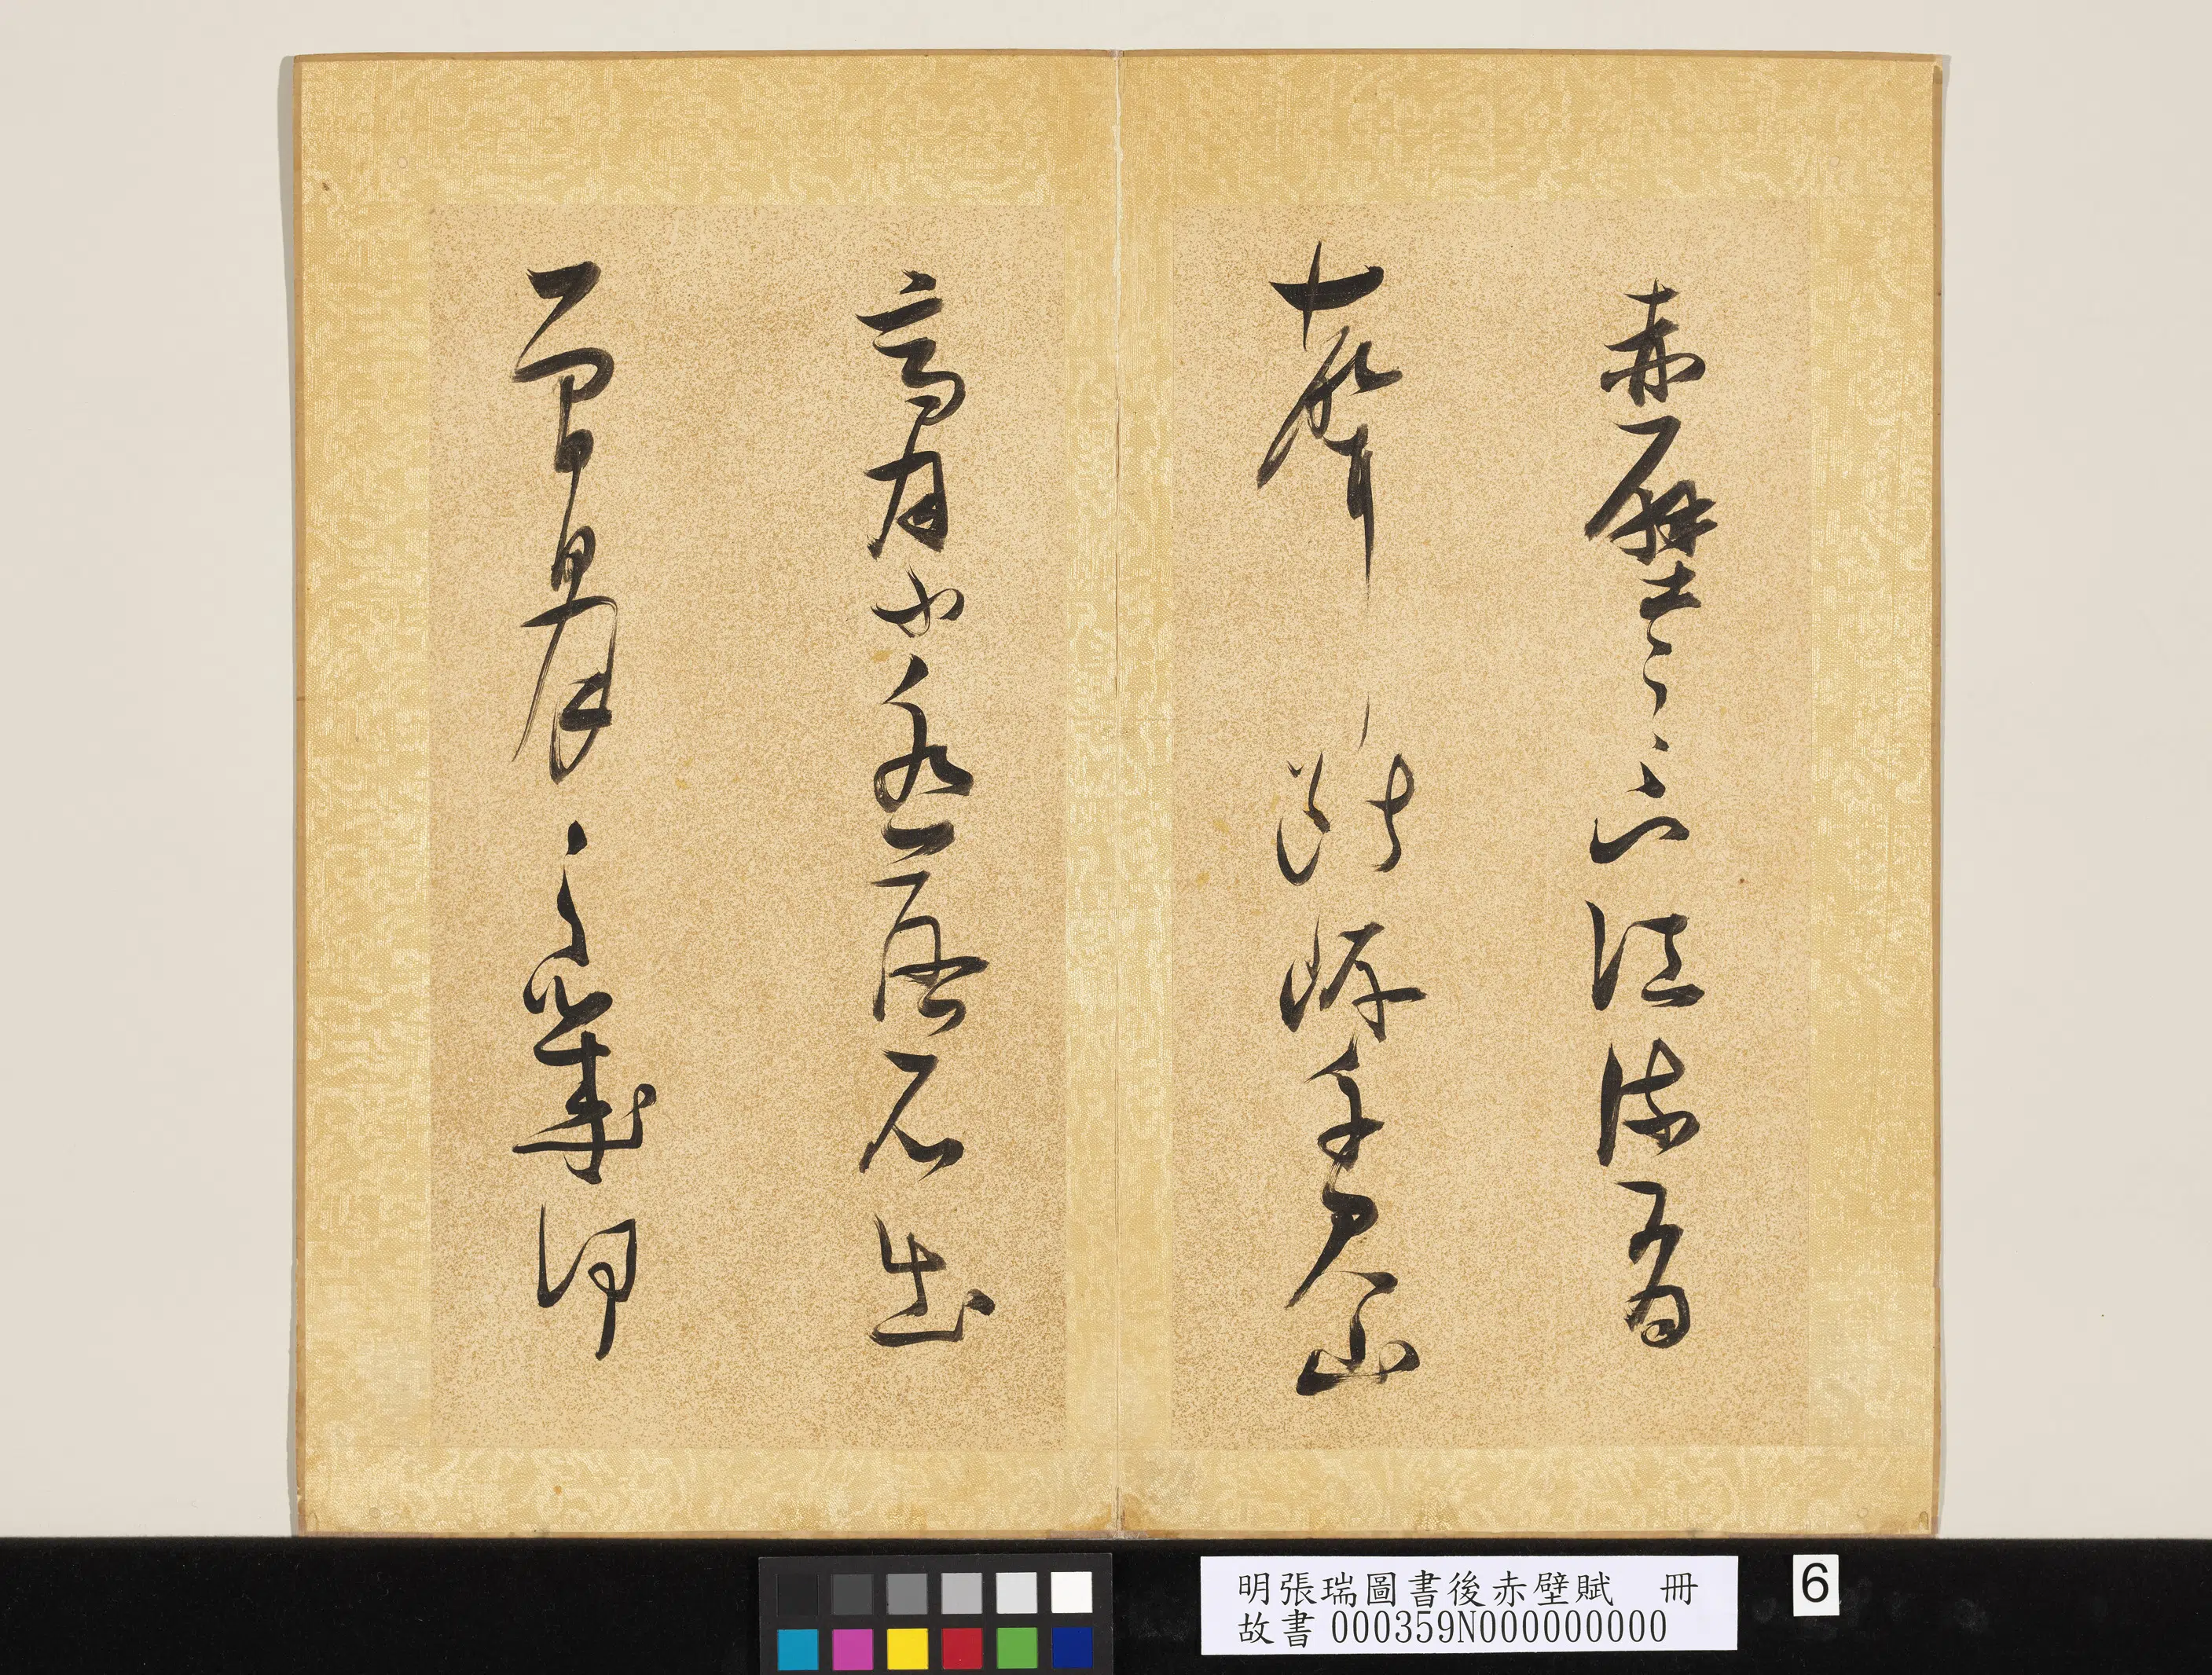 赤壁之下江流有
聲斷岸千尺山
高月小水落石出
曾日月之幾何
明張瑞圖書後赤壁賦 冊
故書000359N000000000
6